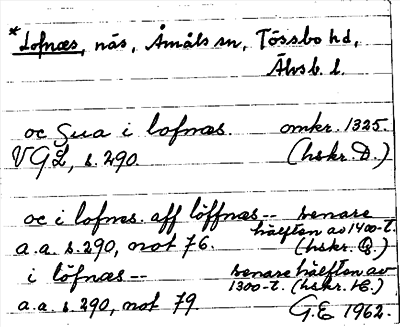 *Lofnæs, näs, Åmåls sn, Tössbo hd,
Älvsb. l.
oc Gua i lofnæs. omkr. 1325.
VGL, s. 290. (hskr. D.)
oc i lofnes. aff löffnas-- senare
hälften av 1400-t.
a.a. s. 290, not 76. (hskr. G.)
i löfnæs -- senare hälften av
1300-t. (hskr. E.)
a.a. s. 290, not 79. G.E 1962.